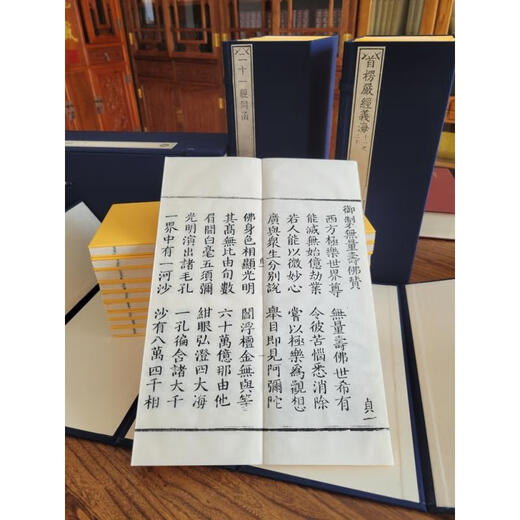 二十一經同函
首楞嚴經義海
御制無量壽佛贊
貞一
西方極樂世界尊 無量壽佛世希有
能滅無始億劫業 令彼苦惱悉消除
若人能以微妙心 嘗以極樂為觀想
廣與衆生分別說 舉目即見阿彌陀
佛身色相顯光明 閻浮檀金無與等
其高無比由旬數 六十萬億那由他
眉間白毫五須彌 紺眼弘澄四大海
光明演出諸毛孔 一孔徧含諸大千
一界中有一河沙 沙有八萬四千相